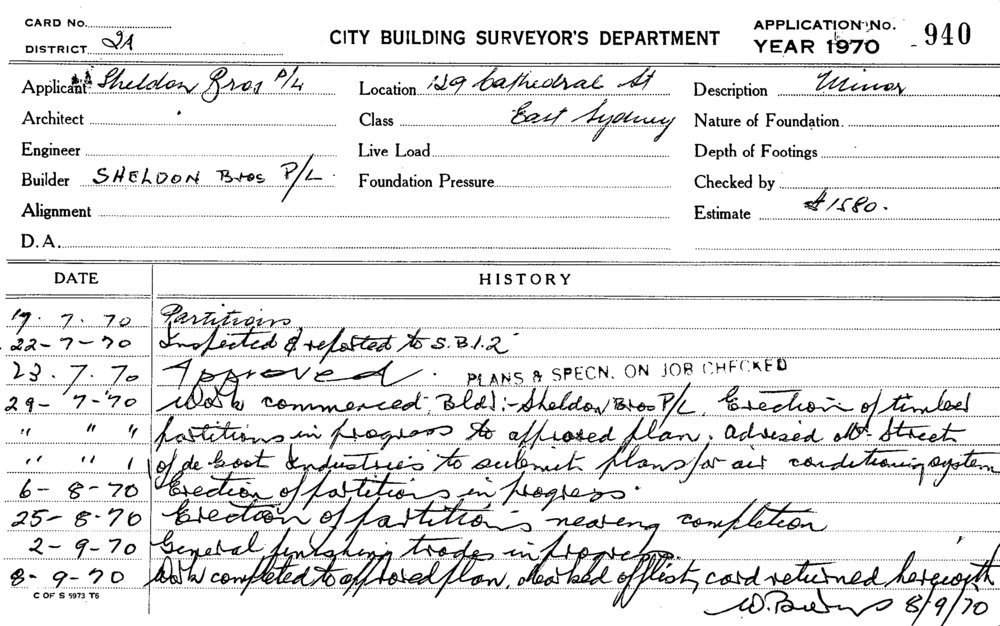 CARD No.
DISTRICT 2A
CITY BUILDING SURVEYOR'S DEPARTMENT
APPLICATION No.
YEAR 1970 940
Applicant Sheldon Bros P/L
Location 129 Cathedral St
Description Minor
Architect
Class East Sydney
Nature of Foundation
Engineer
Live Load
Depth of Footings
Builder SHELDON Bros P/L.
Foundation Pressure
Checked by
Alignment
Estimate $1580.
D.A.
DATE HISTORY
17. 7. 70 Partitions
22-7-70 Inspected & reported to S.B.I.2
23. 7. 70 Approved. PLANS & SPECN. ON JOB CHECKED
29-7-70 Work commenced, Bldr:- Sheldon Bros P/L. Erection of timber
" " " partitions in progress to approved plan. Advised Mr. Street
" " " of de Gost Industries to submit plans for air conditioning system
6-8-70 Erection of partitions in progress.
25-8-70 Erection of partitions nearing completion
2-9-70 General finishing trades in progress.
8-9-70 Work completed to approved plan, marked off list, card returned herewith
C OF S 5973 T6
W. 8/9/70